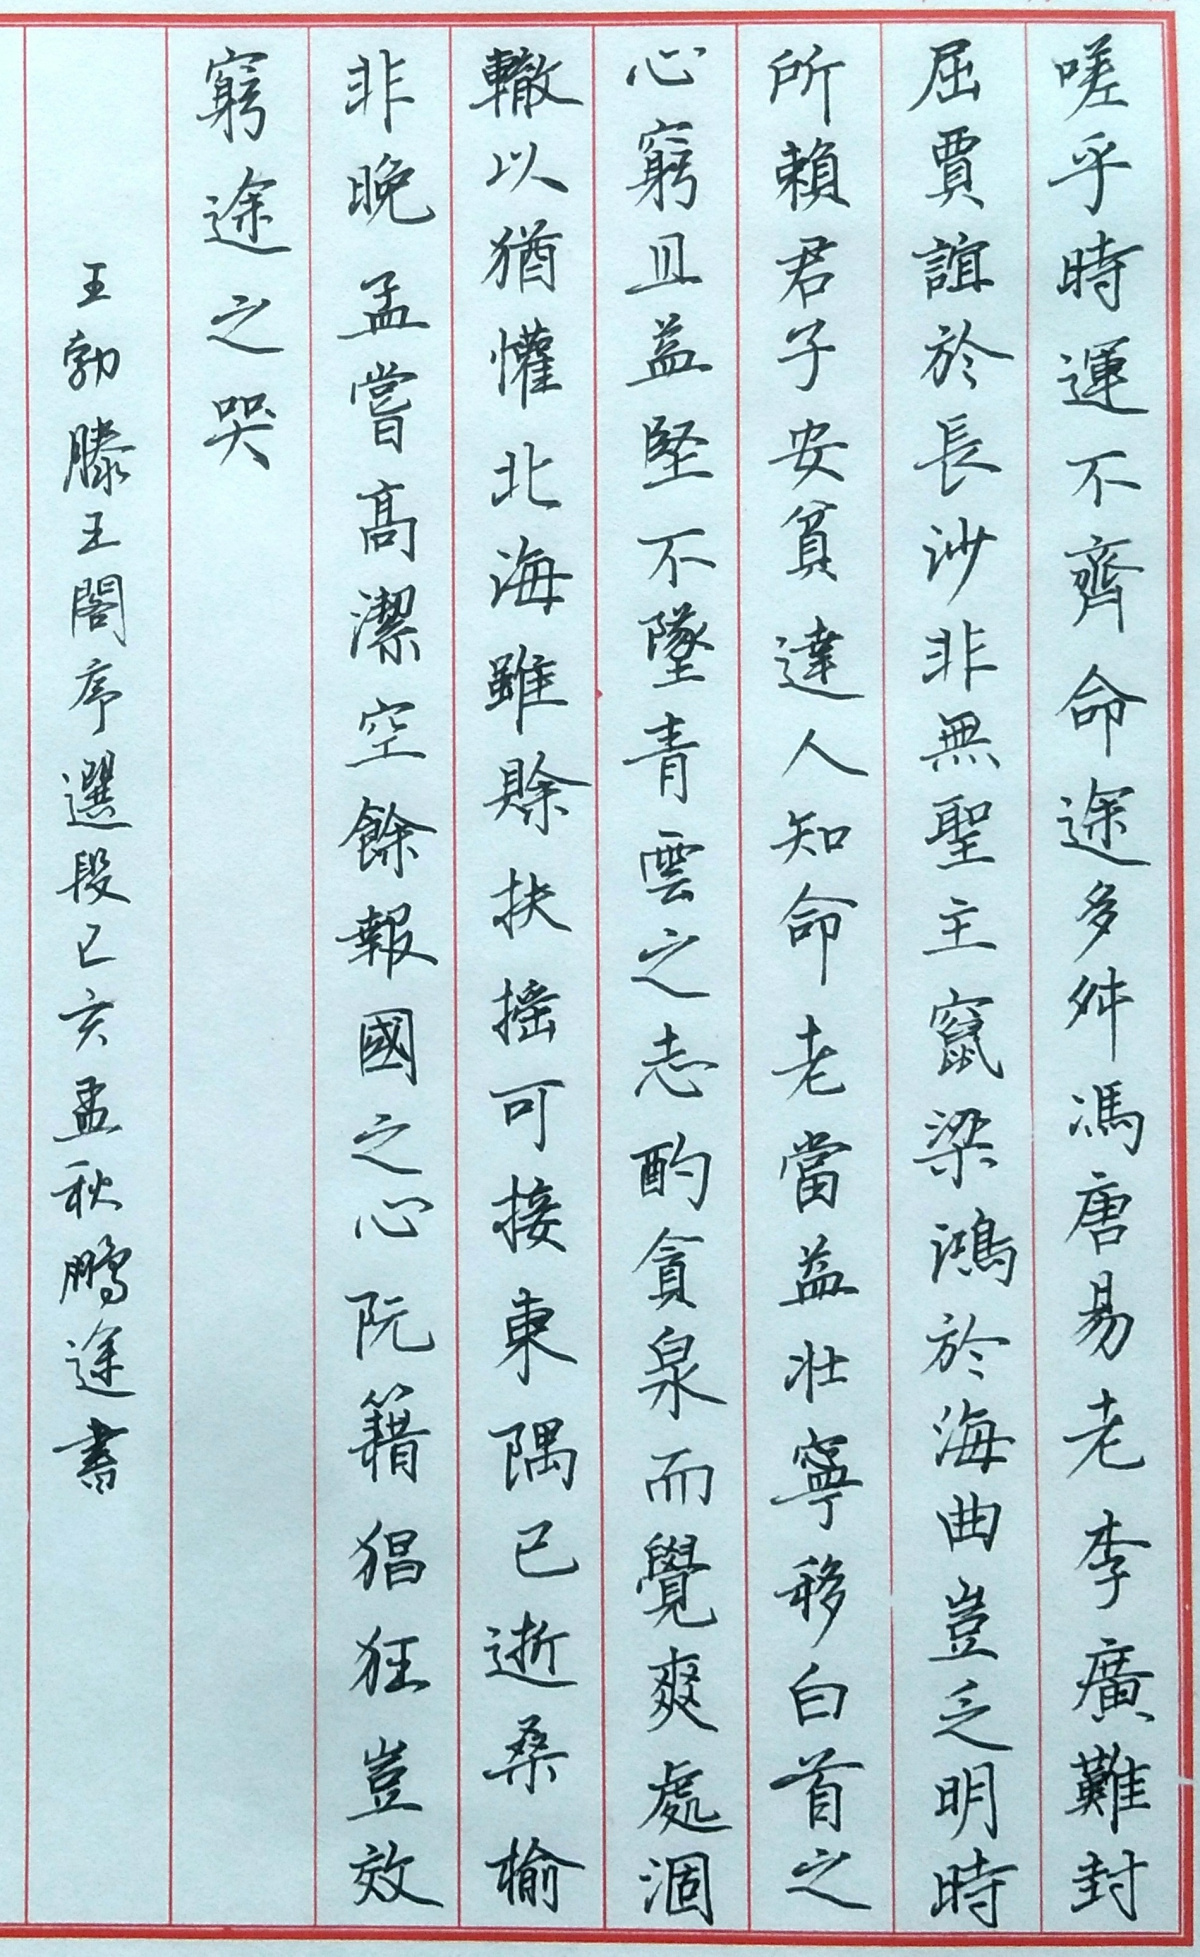 嗟乎時運不齊命途多舛馮唐易老李廣難封
屈賈誼於長沙非無聖主竄梁鴻於海曲豈乏明時
所賴君子安貧達人知命老當益壯寧移白首之
心窮且益堅不墜青雲之志酌貪泉而覺爽處涸
轍以猶懽北海雖賒扶搖可接東隅已逝桑榆
非晚孟嘗高潔空餘報國之心阮籍猖狂豈效
窮途之哭
王勃滕王閣序選段已亥孟秋鵬途書